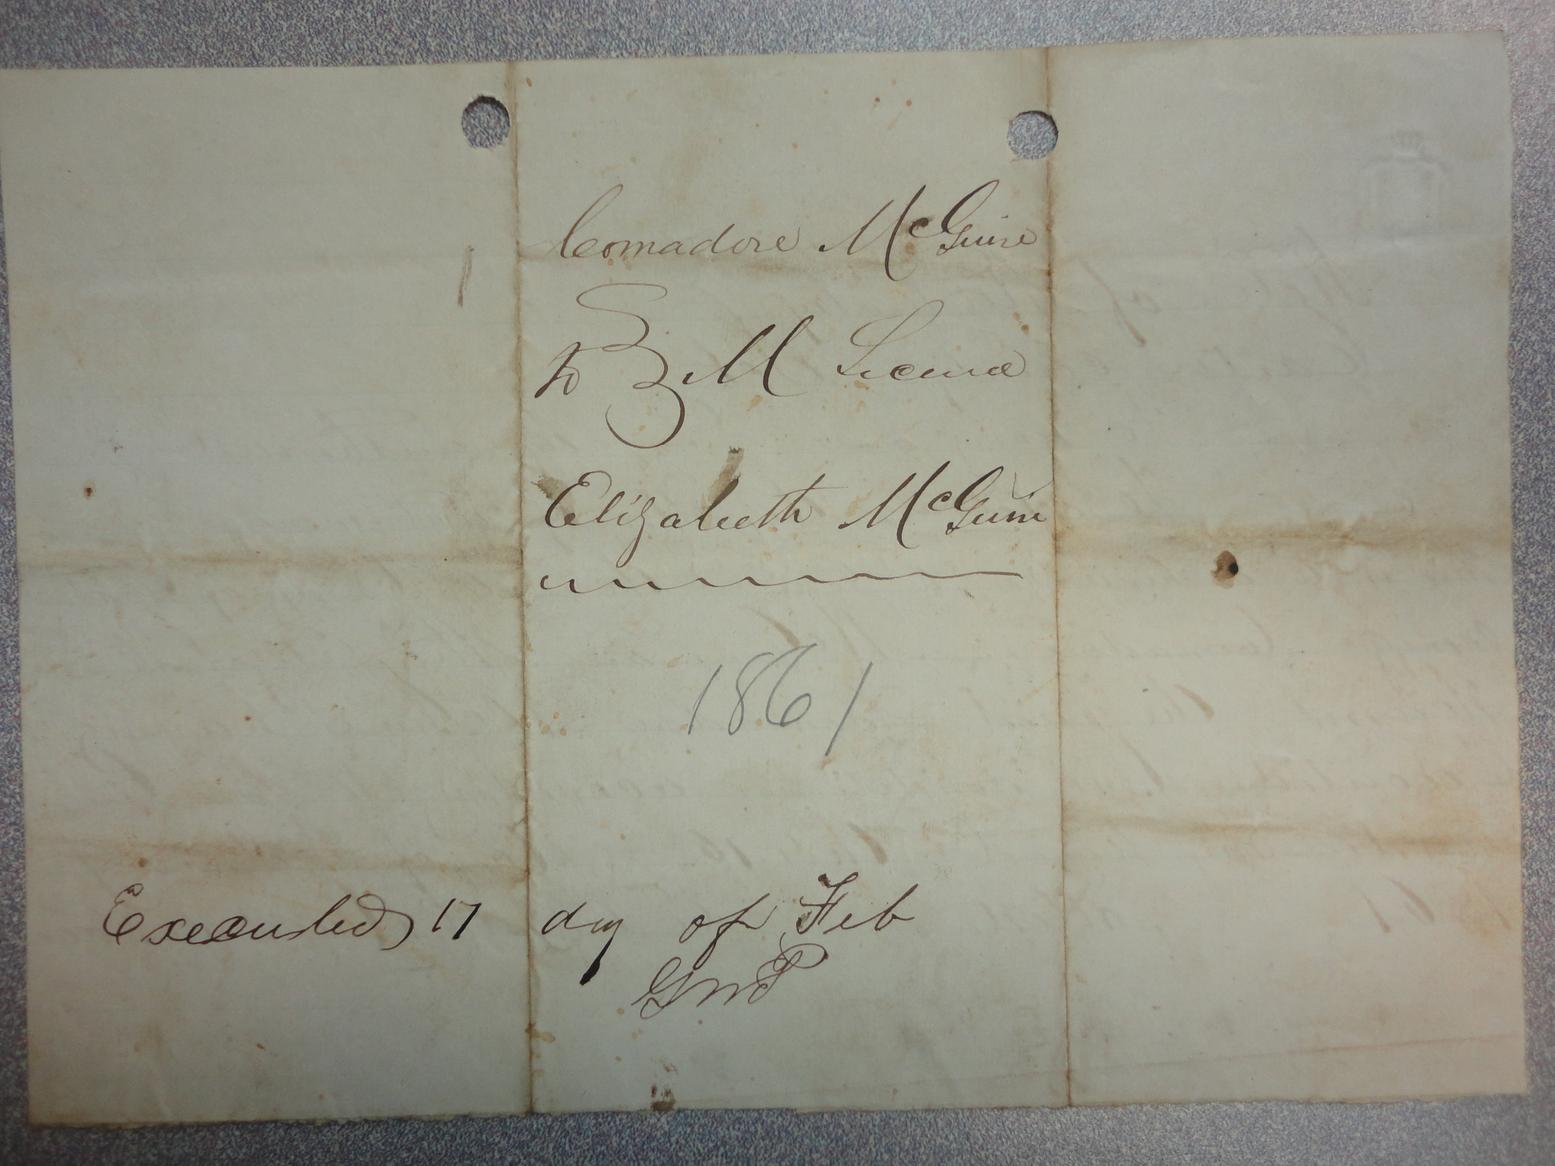 Comadore McGuire
to } M Licence
Elizabeth McGuire
1861
Executed 17 day of Feb
GMP